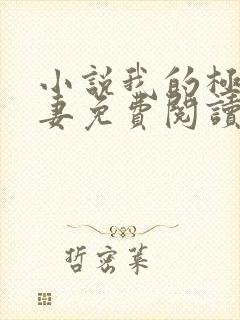 小說我的極
妻免費閱讀
哲密葉